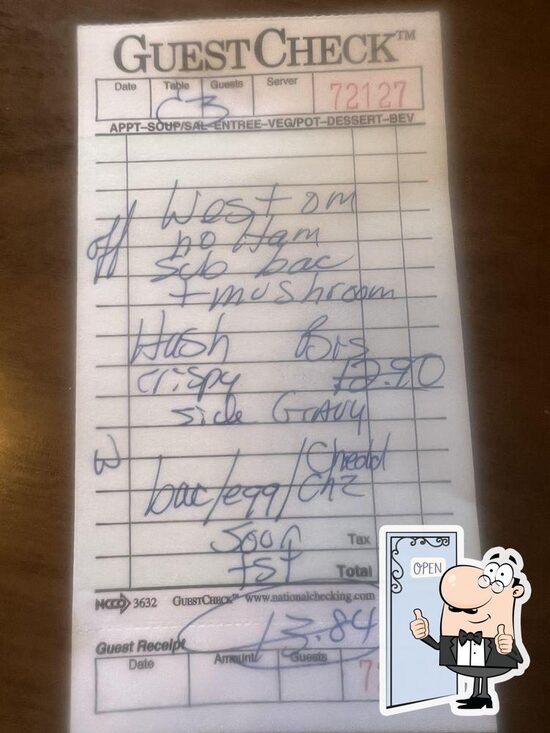 GUESTCHECK™
Date Table Guests Server
C3 72127
APPT–SOUP/SAL–ENTREE–VEG/POT–DESSERT–BEV
West om
off no Ham
sub bac
+mushroom
Hash Bis
crispy 12.90
side Gravy
3 Chedd
bac/egg/chz
Sour Tax
tst Total
NCCO 3632 GUESTCHECK™ www.nationalchecking.com
13.84
Guest Receipt
Date Amount Guests
7
OPEN